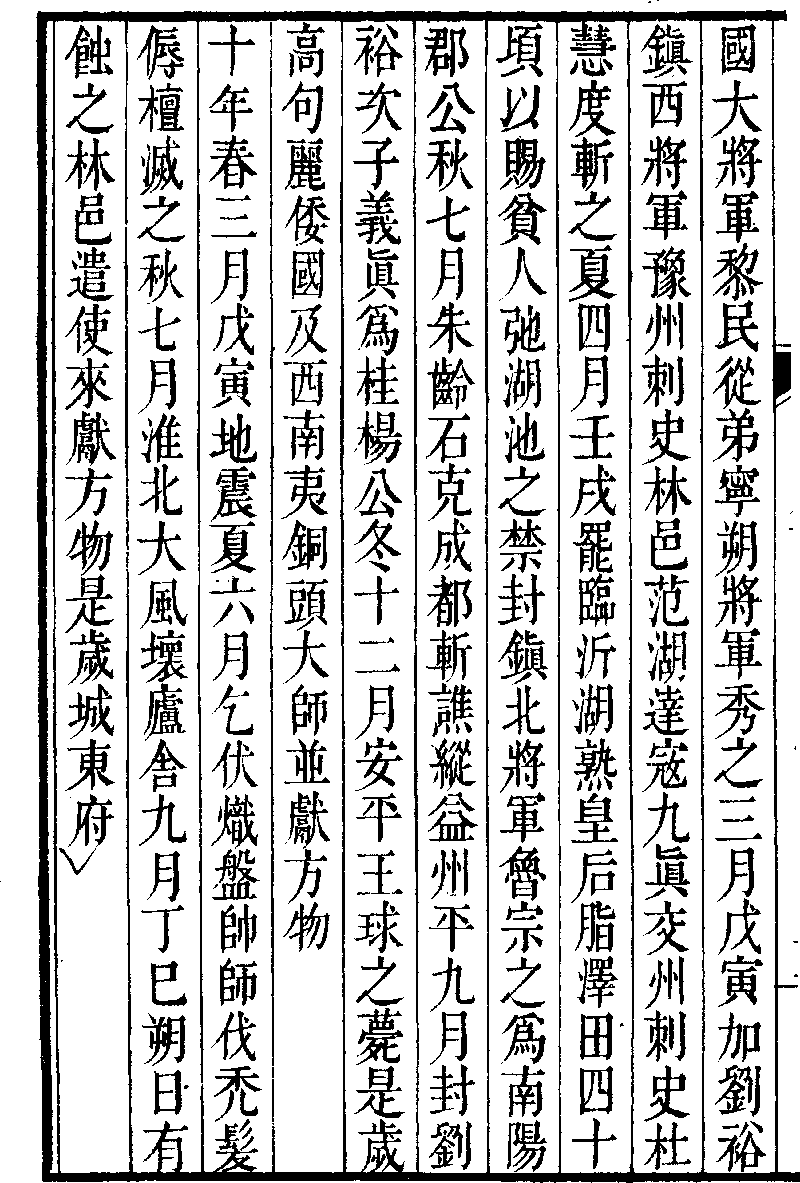 國大將軍黎民從弟寧朔將軍秀之三月戊寅加劉裕
鎭西將軍豫州刺史林邑范湖達宼九眞交州刺史杜
慧度斬之夏四月壬戌罷臨沂湖熟皇后脂澤田四十
頃以賜貧人弛湖池之禁封鎭北將軍魯宗之爲南陽
郡公秋七月朱齡石克成都斬譙縱益州平九月封劉
裕次子義眞爲桂楊公冬十二月安平王球之薨是歲
高句麗倭國及西南夷銅頭大師並獻方物
十年春三月戊寅地震夏六月乞伏熾盤帥師伐禿髮
傉檀滅之秋七月淮北大風壞廬舍九月丁巳朔日有
蝕之林邑遣使來獻方物是歲城東府